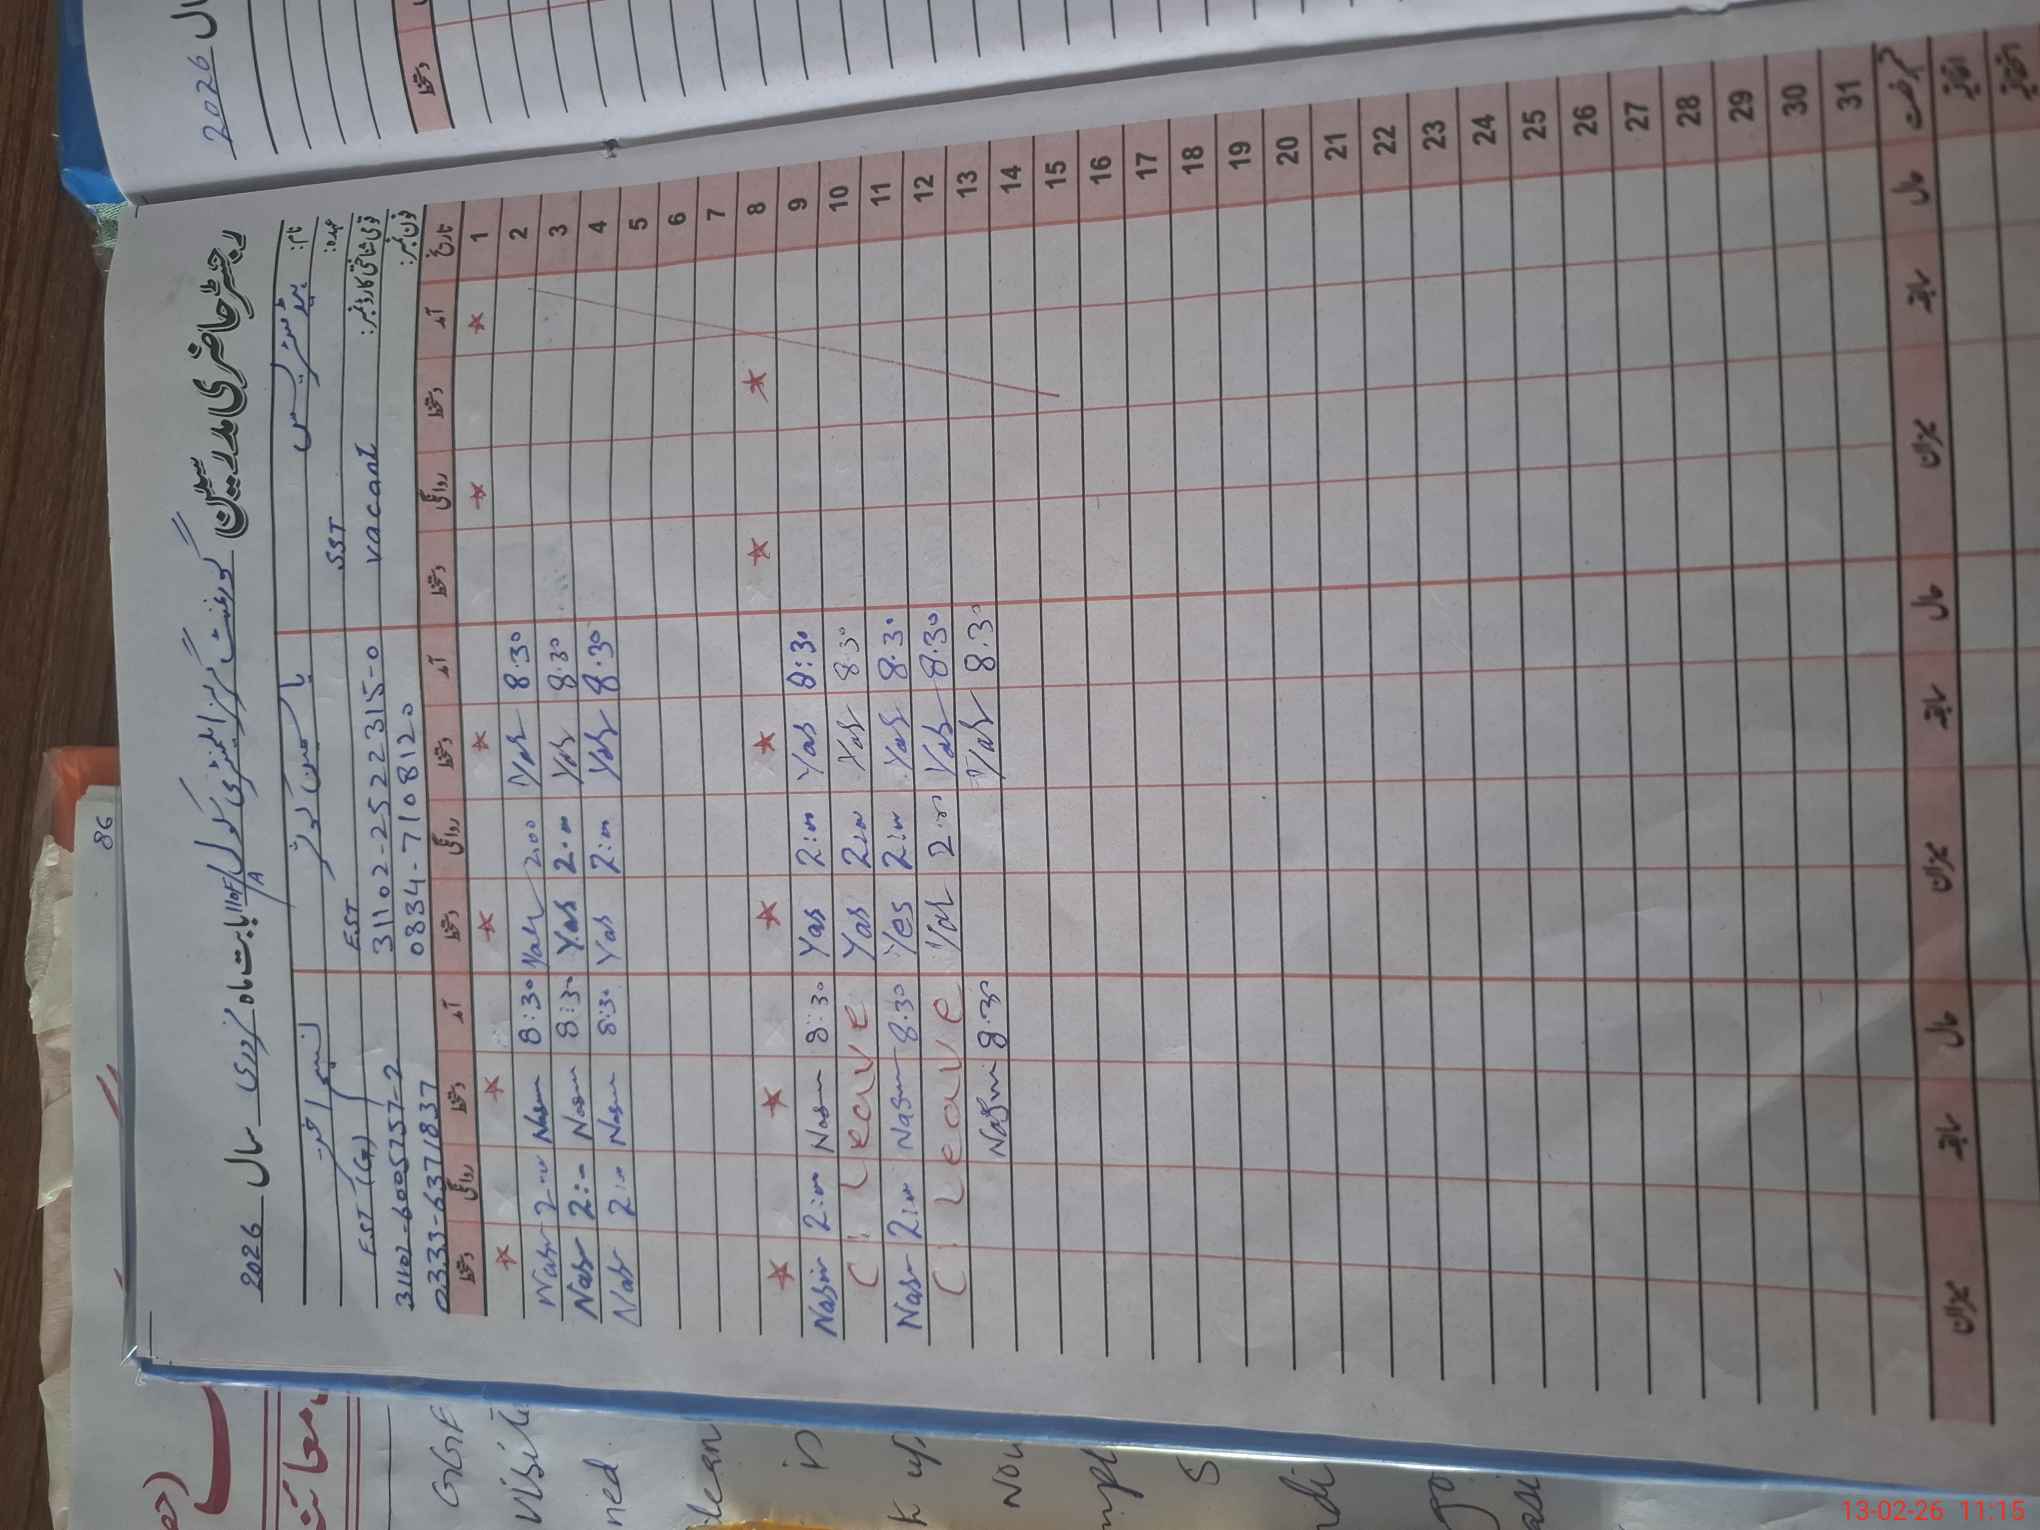 رجسٹر حاضری مدرسین گورنمنٹ گرلز ایلیمنٹری سکول بابت ماہ فروری سال 2026
نام: ہیڈ مسٹریس
یاسمین کوثر
نسیم اختر
عہدہ: SST
EST
EST (G)
قومی شناختی کارڈ نمبر: vacant
31102-2522315-0
31102-6005757-2
فون نمبر:
0334-7108120
0333-6371837
تاریخ آمد دستخط روانگی دستخط آمد دستخط روانگی دستخط آمد دستخط روانگی دستخط
1
2 8:30 Yas 2:00 Yas 8:30 Nasm 2:00 Nasm
3 8:30 Yas 2:00 Yas 8:30 Nasm 2:00 Nasm
4 8:30 Yas 2:00 Yas 8:30 Nasm 2:00 Nasm
5
6
7
8
9 8:30 Yas 2:00 Yas 8:30 Nasm 2:00 Nasim
10 8:30 Yas 2:00 Yas C. Leave
11 8:30 Yas 2:00 Yes 8:30 Nasm 2:00 Nasm
12 8:30 Yas 2:00 Yas C. Leave
13 8:30 Yas 8:30 Nasm
14
15
16
17
18
19
20
21
22
23
24
25
26
27
28
29
30
31
حال سابقہ میزان حال سابقہ میزان حال سابقہ میزان
اتفاقیہ
سال 2026
دستخط
86
GGE
visit
ned
lean
is
k up
Now
13-02-26 11:15